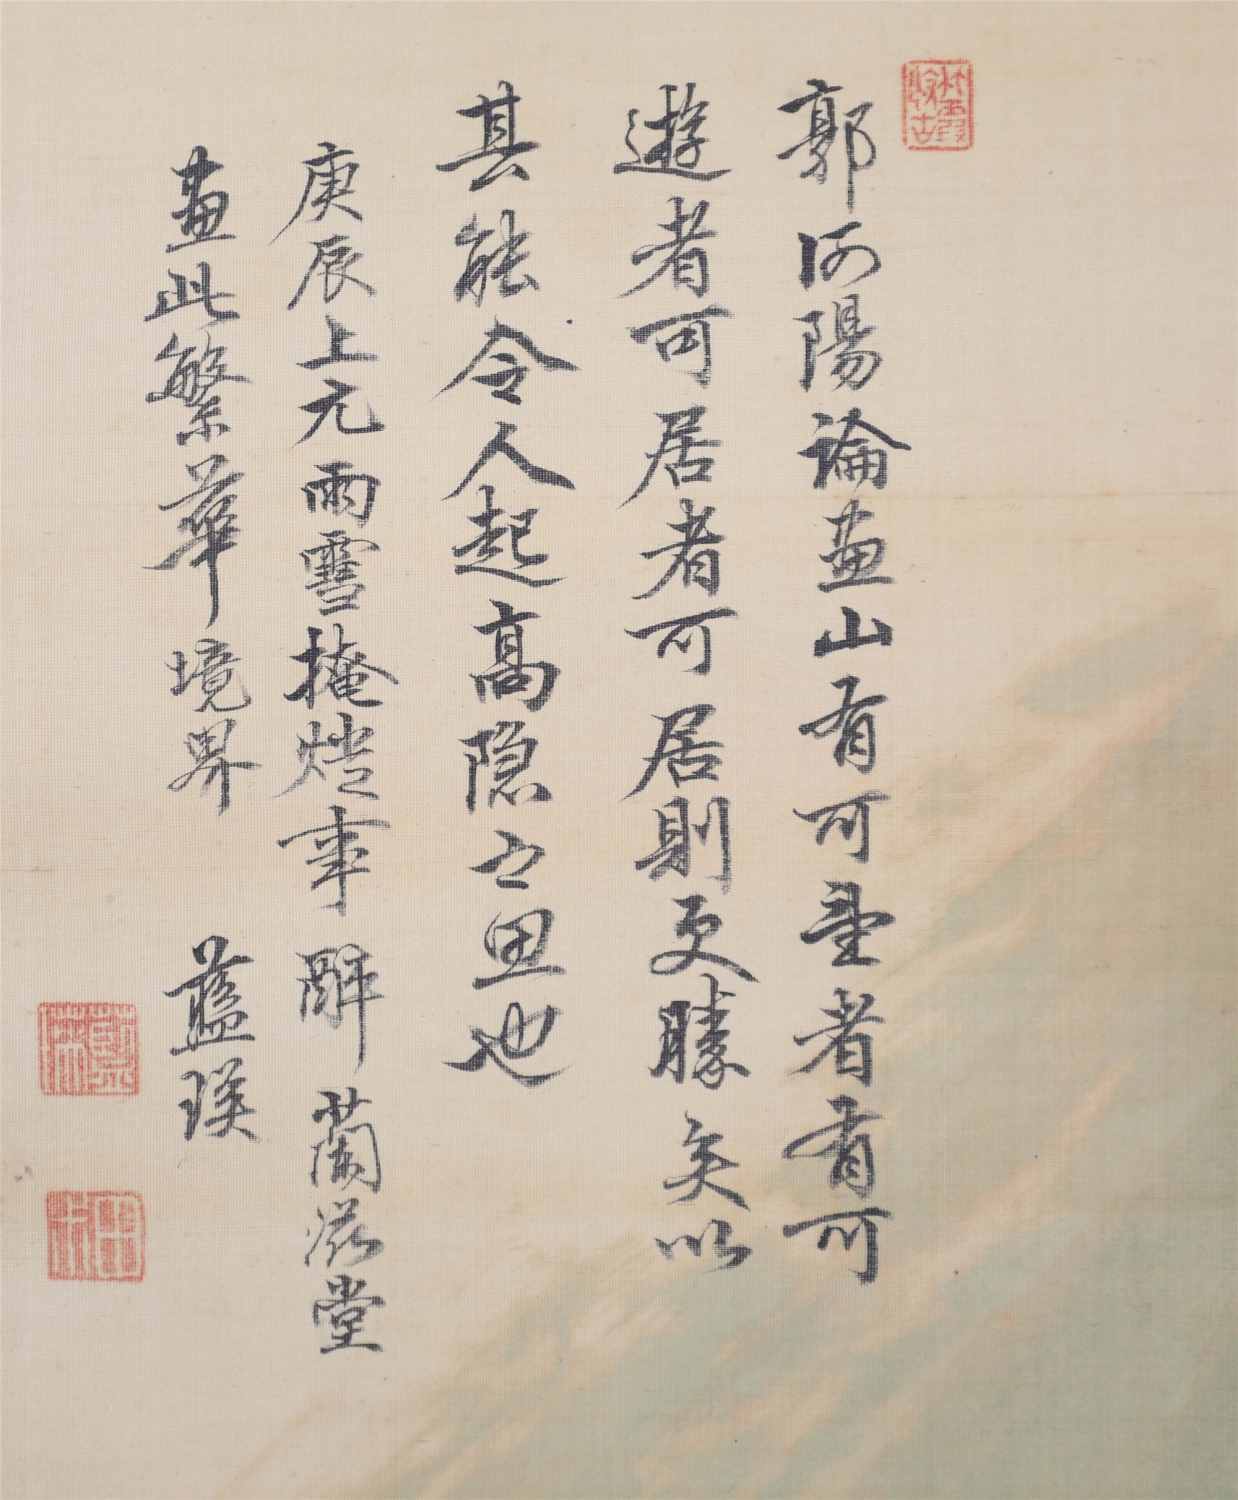 郭河陽論畫山有可望者有可
遊者可居者可居則更勝矣以
其能令人起高隱之思也
庚辰上元雨雪掩燈事醉蘭滋堂
畫此繁華境界 藍瑛